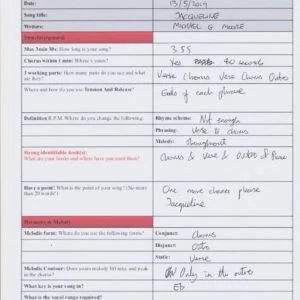 Date: 13/5/2019
Song title: JACQUELINE
Writers: MICHAEL G MOORE
Structure/general
Max 3min 30s: How long is your song? 3.55
Chorus within 1 min: Where's yours? Yes 40 seconds
3 working parts: How many parts do you use and what are they? Verse Chorus Verse Chorus Outro
Where and how do you use Tension And Release? Ends of each phrase
Definition B.P.M. Where do you change the following.
Rhyme scheme: Not enough
Phrasing: Verse to chorus
Melody: throughout
Strong identifiable hook(s):
What are your hooks and where have you used them?
Chorus & Verse & Outro &
Have a point! What is the point of your song? (No more than 20 words!)
One more chance please
Jacqueline
Harmony & Melody
Melodic form: Where do you use the following forms?
Conjunct: Chorus
Disjunct: Outro
Static: Verse
Melodic Contour: Does yours melody lift rise, and peak in the chorus? Only in the outro
What key is your song in? Eb
What is the vocal range required?